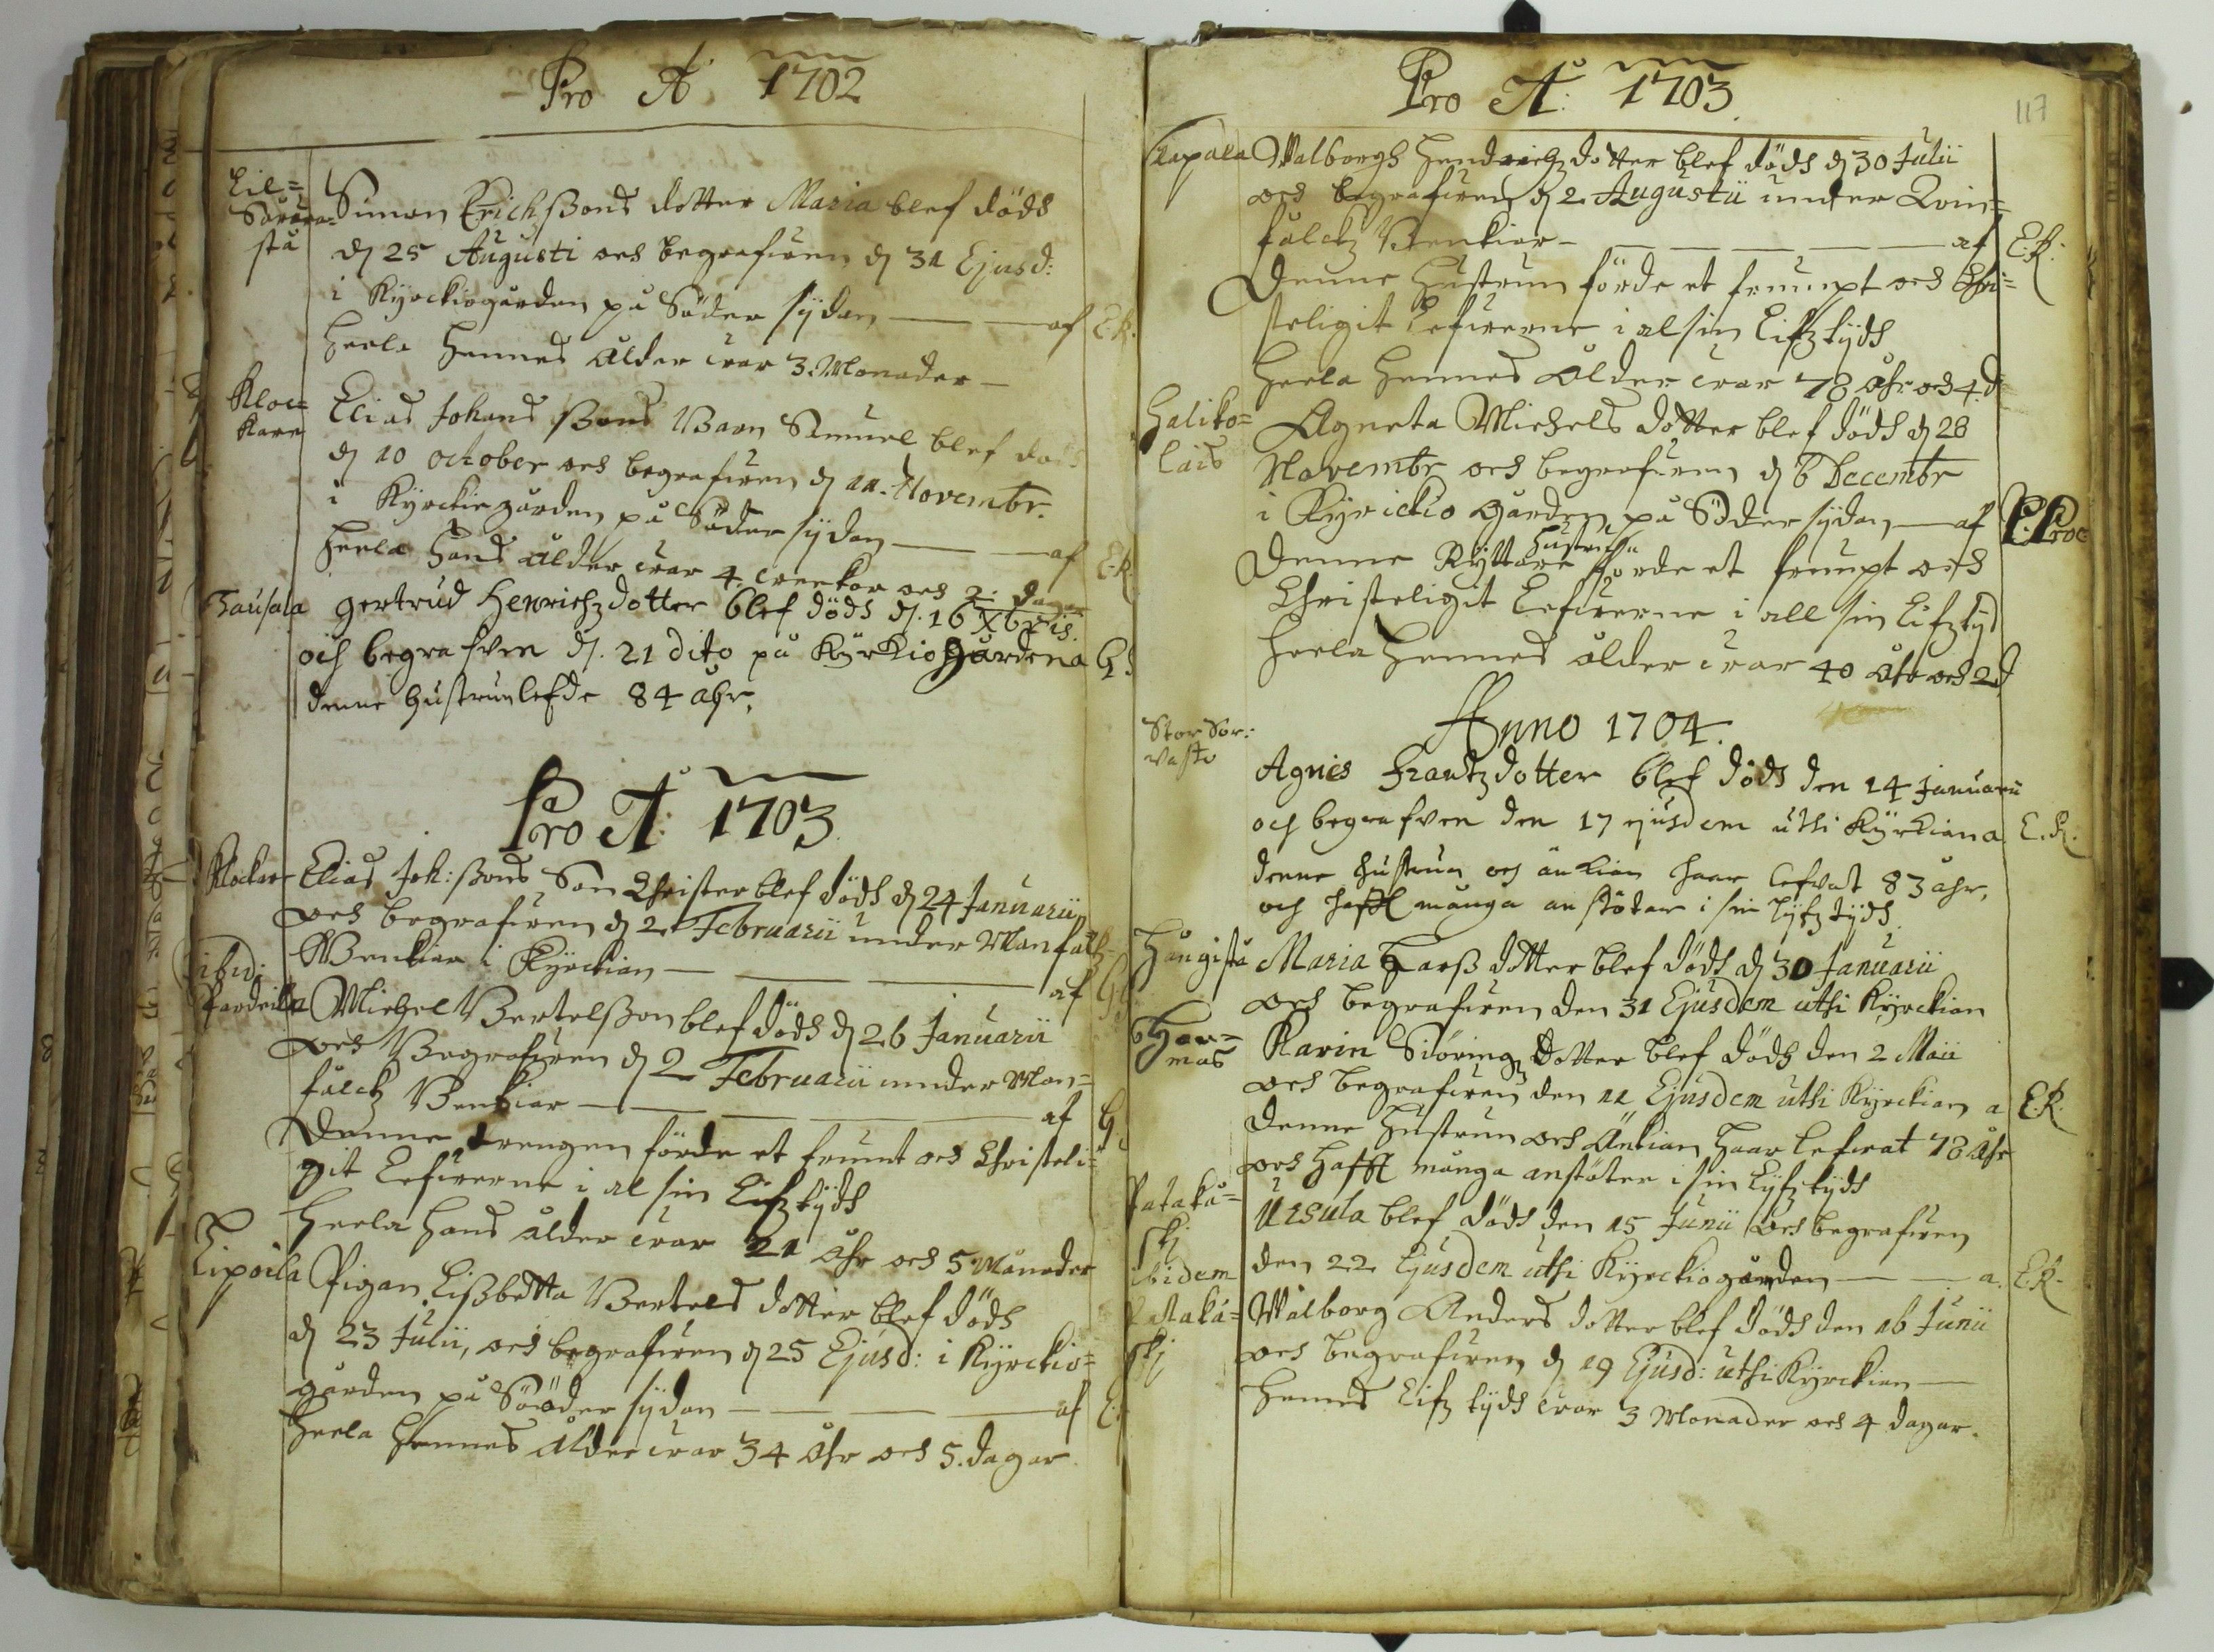 Pro A: 1702
Lil=
Sarva=
sta
Simon Erichßons dotter Maria blef dödh
d 25 Augusti och begrafwen d 31 Ejusd:
i Kyrckiogården på Söder sydan — af E.K.
heela hennes ålder war 3. Monader —
Kloc=
kare
Elias Johans ßons Barn Samuel blef dödh
d 10 october och begrafwen d 11. Novembr.
i Kyrckiogården på Söder sydan — af E.K.
heela hans ålder war 4 weekor och 2. dagar
gertrud Henrichzdotter blef dödh d. 16 Xbris.
och begrafven d. 21 dito på Kyrkiogårdena G
denne hustrun lefde 84 åhr.
Pro A: 1703.
Klockare
Elias Joh: ßons Son Christer blef dödh d 24 Januarii
och begrafwen d 2 Februarii under Manfalck
Benkian i Kyrckian — af G
ibid:
Michel Bertelßon blef dödh d 26 Januarii
och Begrafwen d 2 Februarii under Man=
falckz Benkiar — af G
Denne drengen förde et frumt och Christeli=
git Lefwerne i al sin Lifztydh
heela hans ålder war 21 åhr och 5 Månader
Lipoila
Pigan Lißbetta Bertels dotter blef dödh
d 23 Julii, och begrafwen d 25 Ejusd: i Kyrckio=
gården på Sööder sydan — af E.
heela hennes ålder war 34 åhr och 5. dagar.
Pro A: 1703.
117
Valborgh Hendrichzdotter blef dödh d 30 Julii
och begrafwen d 2. Augustii under Qvin=
falckz Benkiar — af E.K.
Denne hustrun förde et frumpt och Chri=
steligit Lefwerne i al sin Lifztydh
heela hennes ålder war 78 åhr och 4. d
Haliko=
lais
Agneta Michels dotter blef dödh d 28
Novembr och begrafwen d 6 Decembr
i Kyrickio gården på Söder sydan — af
Denne Ryttare hustru förde et frumpt och
Christeligit Lefwerne i all sin Lifztyd
heela hennes ålder war 40 åhr och 2 d
Anno 1704.
Stor Sar:
vasto
Agnes Frantzdotter blef dödh den 14 Januarii
och begrafven den 17 ejusdem uthi Kyrkian a E.K.
denne hustrun och änkian haar lefvat 83 åhr,
och hafft många anstötar i sin lyfztydh.
Haugista
Maria Larß dotter blef dödh d 30 Januarii
och begrafwen den 31 Ejusdem uthi Kyrckian
Karin Siöringz dotter blef dödh den 2 Maii
och begrafwen den 11 Ejusdem uthi Kyrckian a E.K.
Denne hustrun och Änkian haar lefwat 78 åhr
och hafft många anstöter i sin Lyfztydh
Pataku=
skj
Ursula blef dödh den 15 Junii och begrafwen
den 22 Ejusdem uthi Kyrckiogården — a. E.K.
ibidem
Pataku=
skj
Walborg Anders dotter blef dödh den 16 Junii
och begrafwen d 19 Ejusd: uthi Kyrckian —
hennes Lifztydh war 3 Monader och 4 dagar.